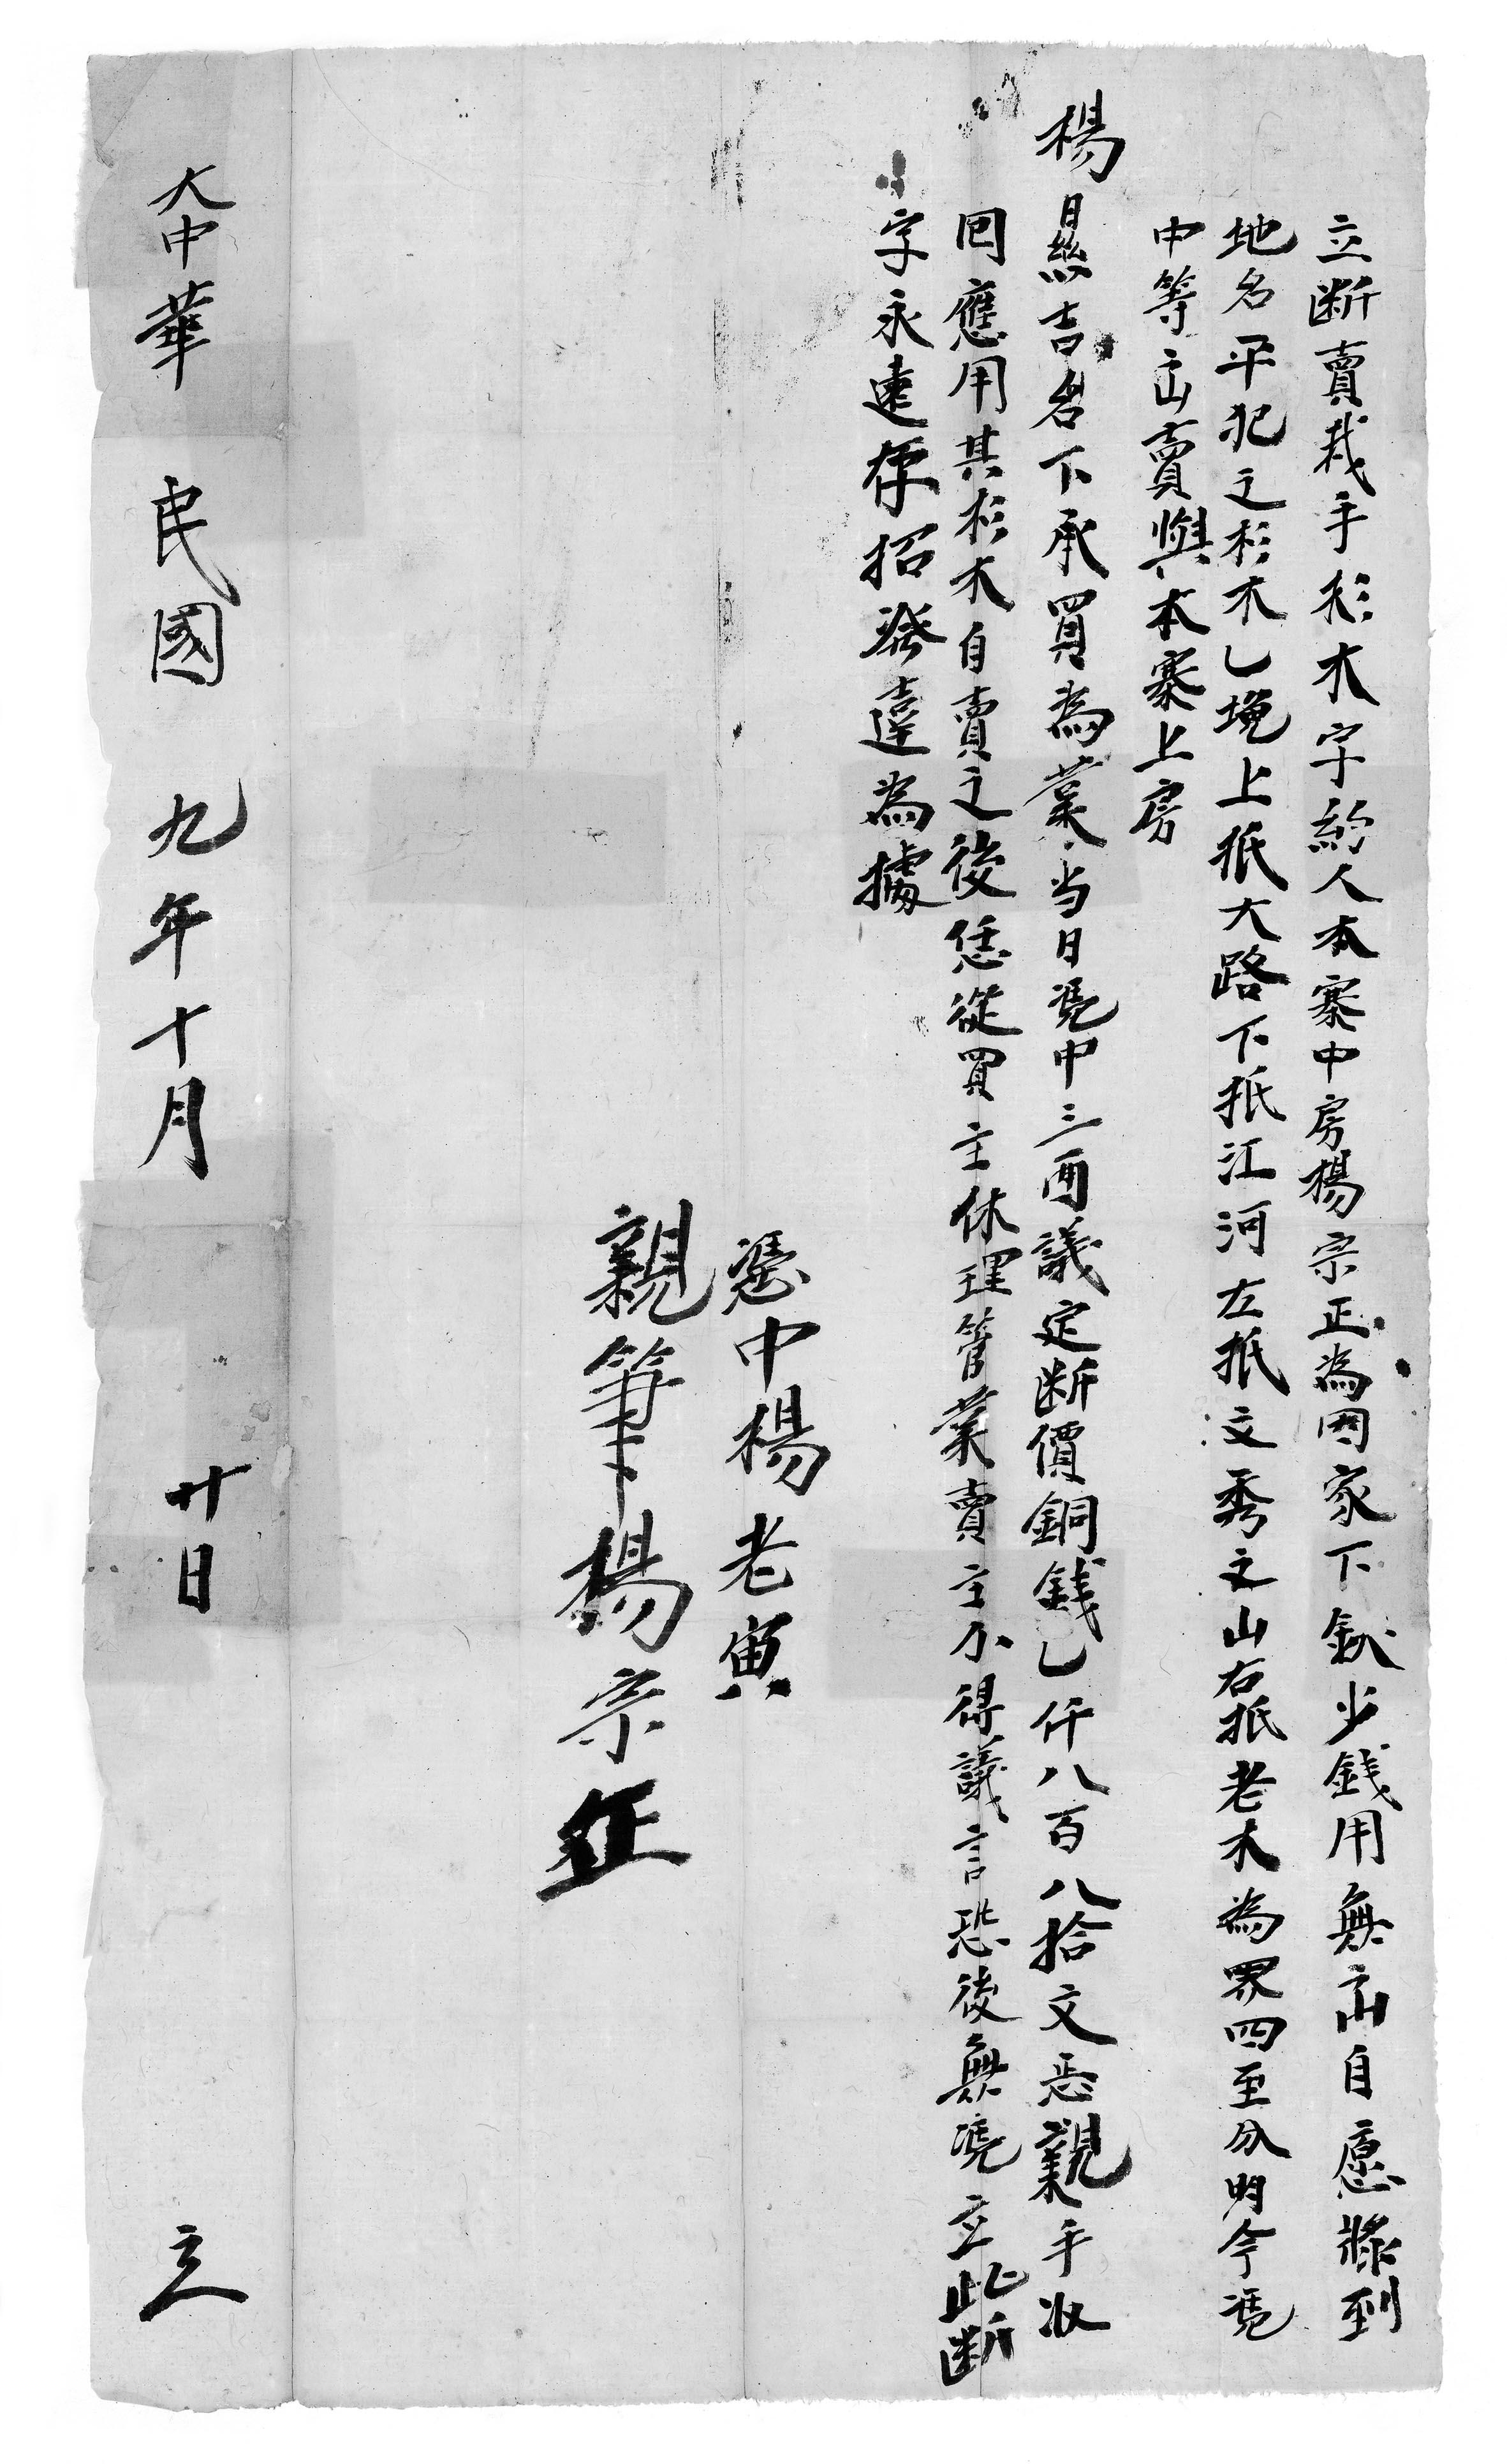 立断賣栽手杉木字約人本寨中房楊宗正為因家下缺少錢用無出自愿將到
地名平犯之杉木乙塊上抵大路下抵江河左抵文秀之山右抵老木為界四至分明今憑
中等出賣與本寨上房
楊㬎吉名下承買為業当日凴中三面議定断價銅錢乙仟八百八拾文恁親手收
回應用其杉木自賣之後恁從買主休理管業賣主不得議言恐後無凴立此断
字永遠存招發達為據
憑中楊老寅
親筆楊宗征
大中華民國九年十月廿日立